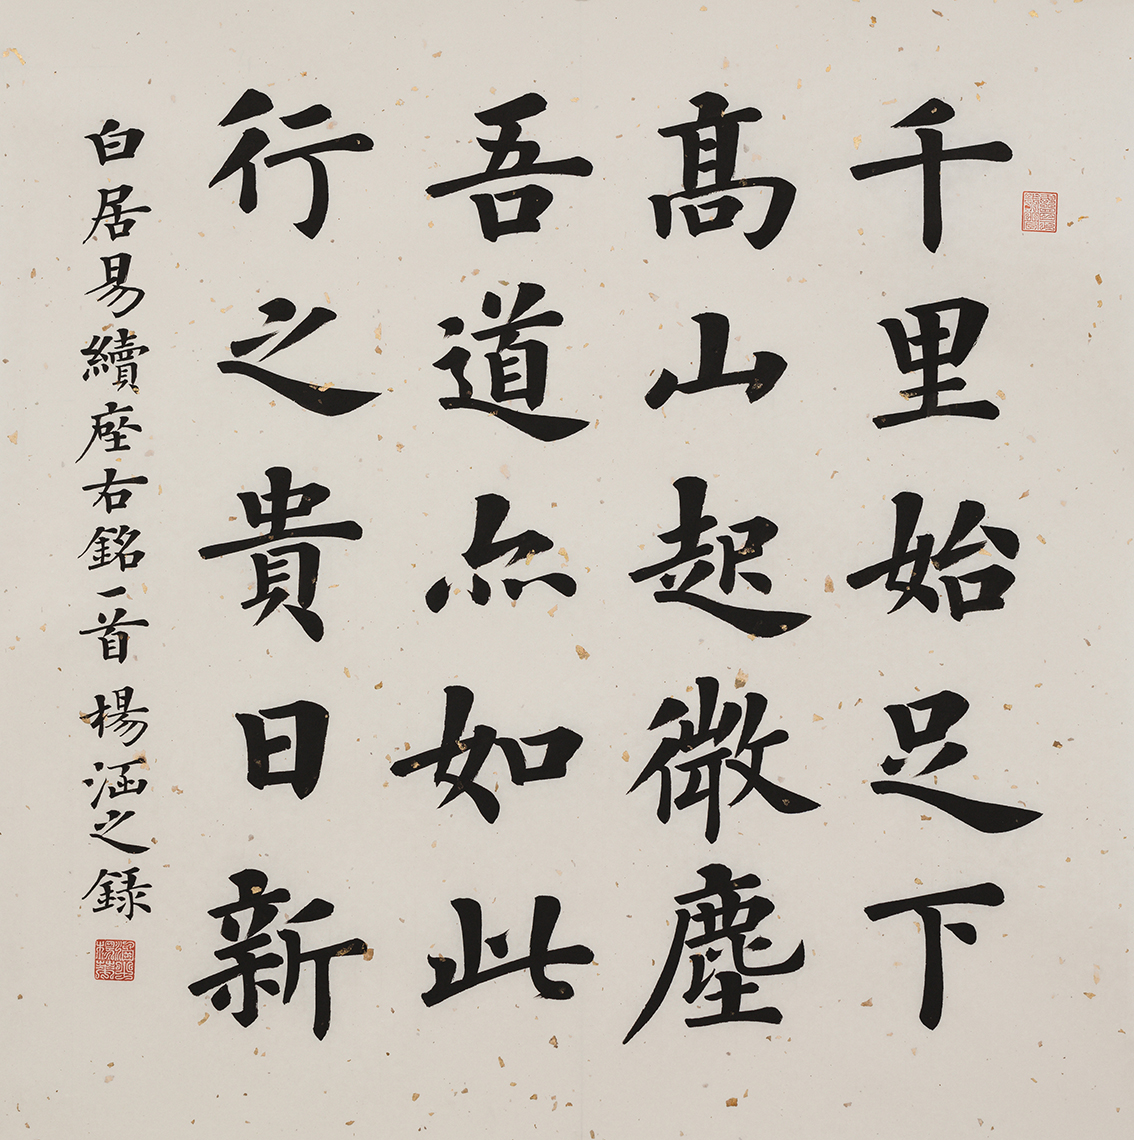 千里始足下
髙山起微塵
吾道亦如此
行之貴日新
白居易續座右銘一首 楊涵之録